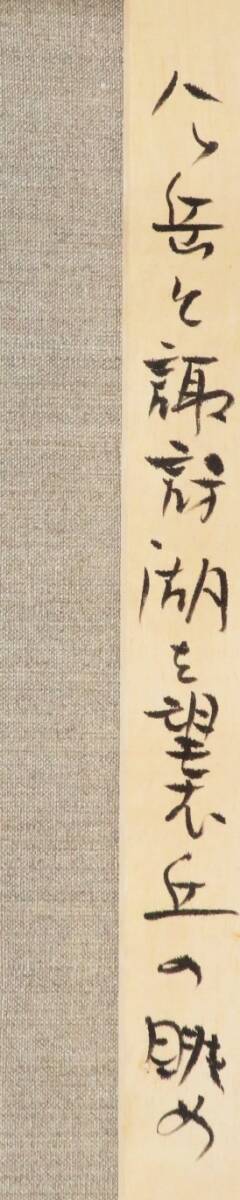 八ヶ岳と諏訪湖を望む丘の眺め